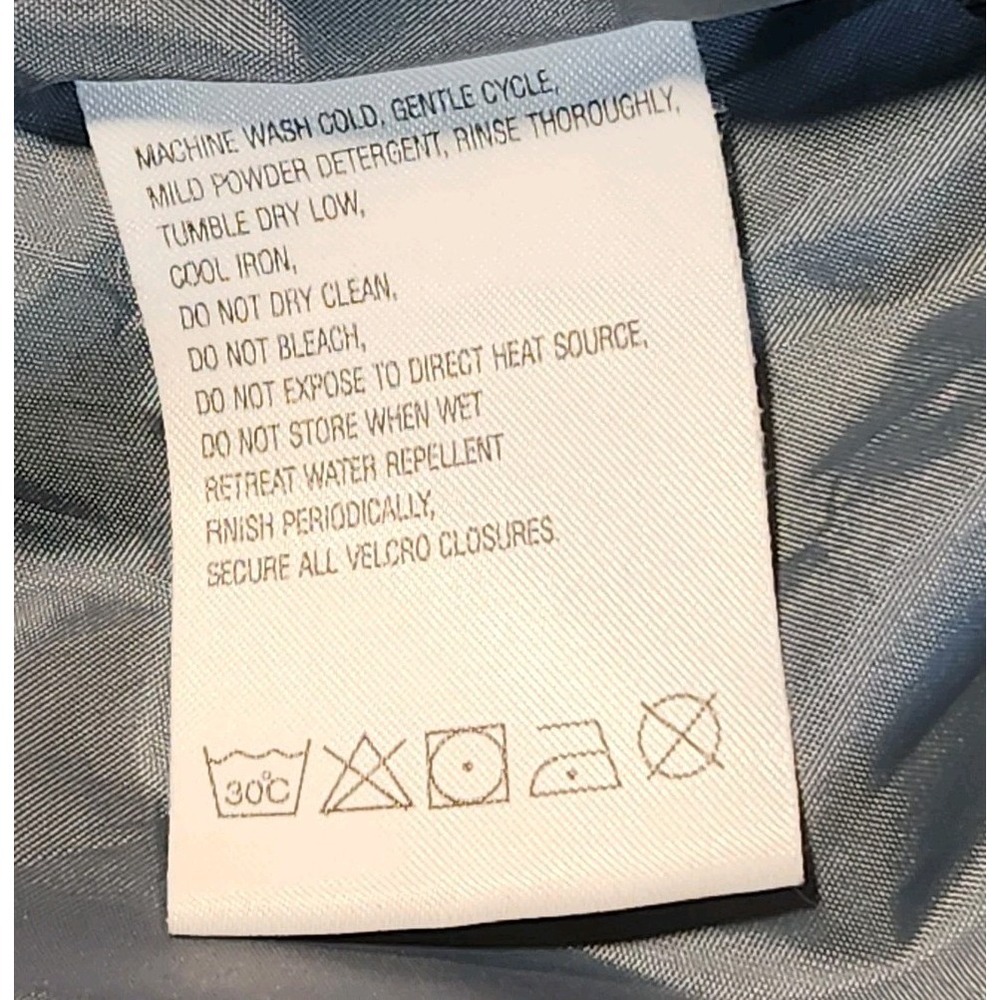 MACHINE WASH COLD, GENTLE CYCLE,
MILD POWDER DETERGENT, RINSE THOROUGHLY,
TUMBLE DRY LOW,
COOL IRON,
DO NOT DRY CLEAN,
DO NOT BLEACH,
DO NOT EXPOSE TO DIRECT HEAT SOURCE,
DO NOT STORE WHEN WET
RETREAT WATER REPELLENT
FINISH PERIODICALLY,
SECURE ALL VELCRO CLOSURES.
30°C